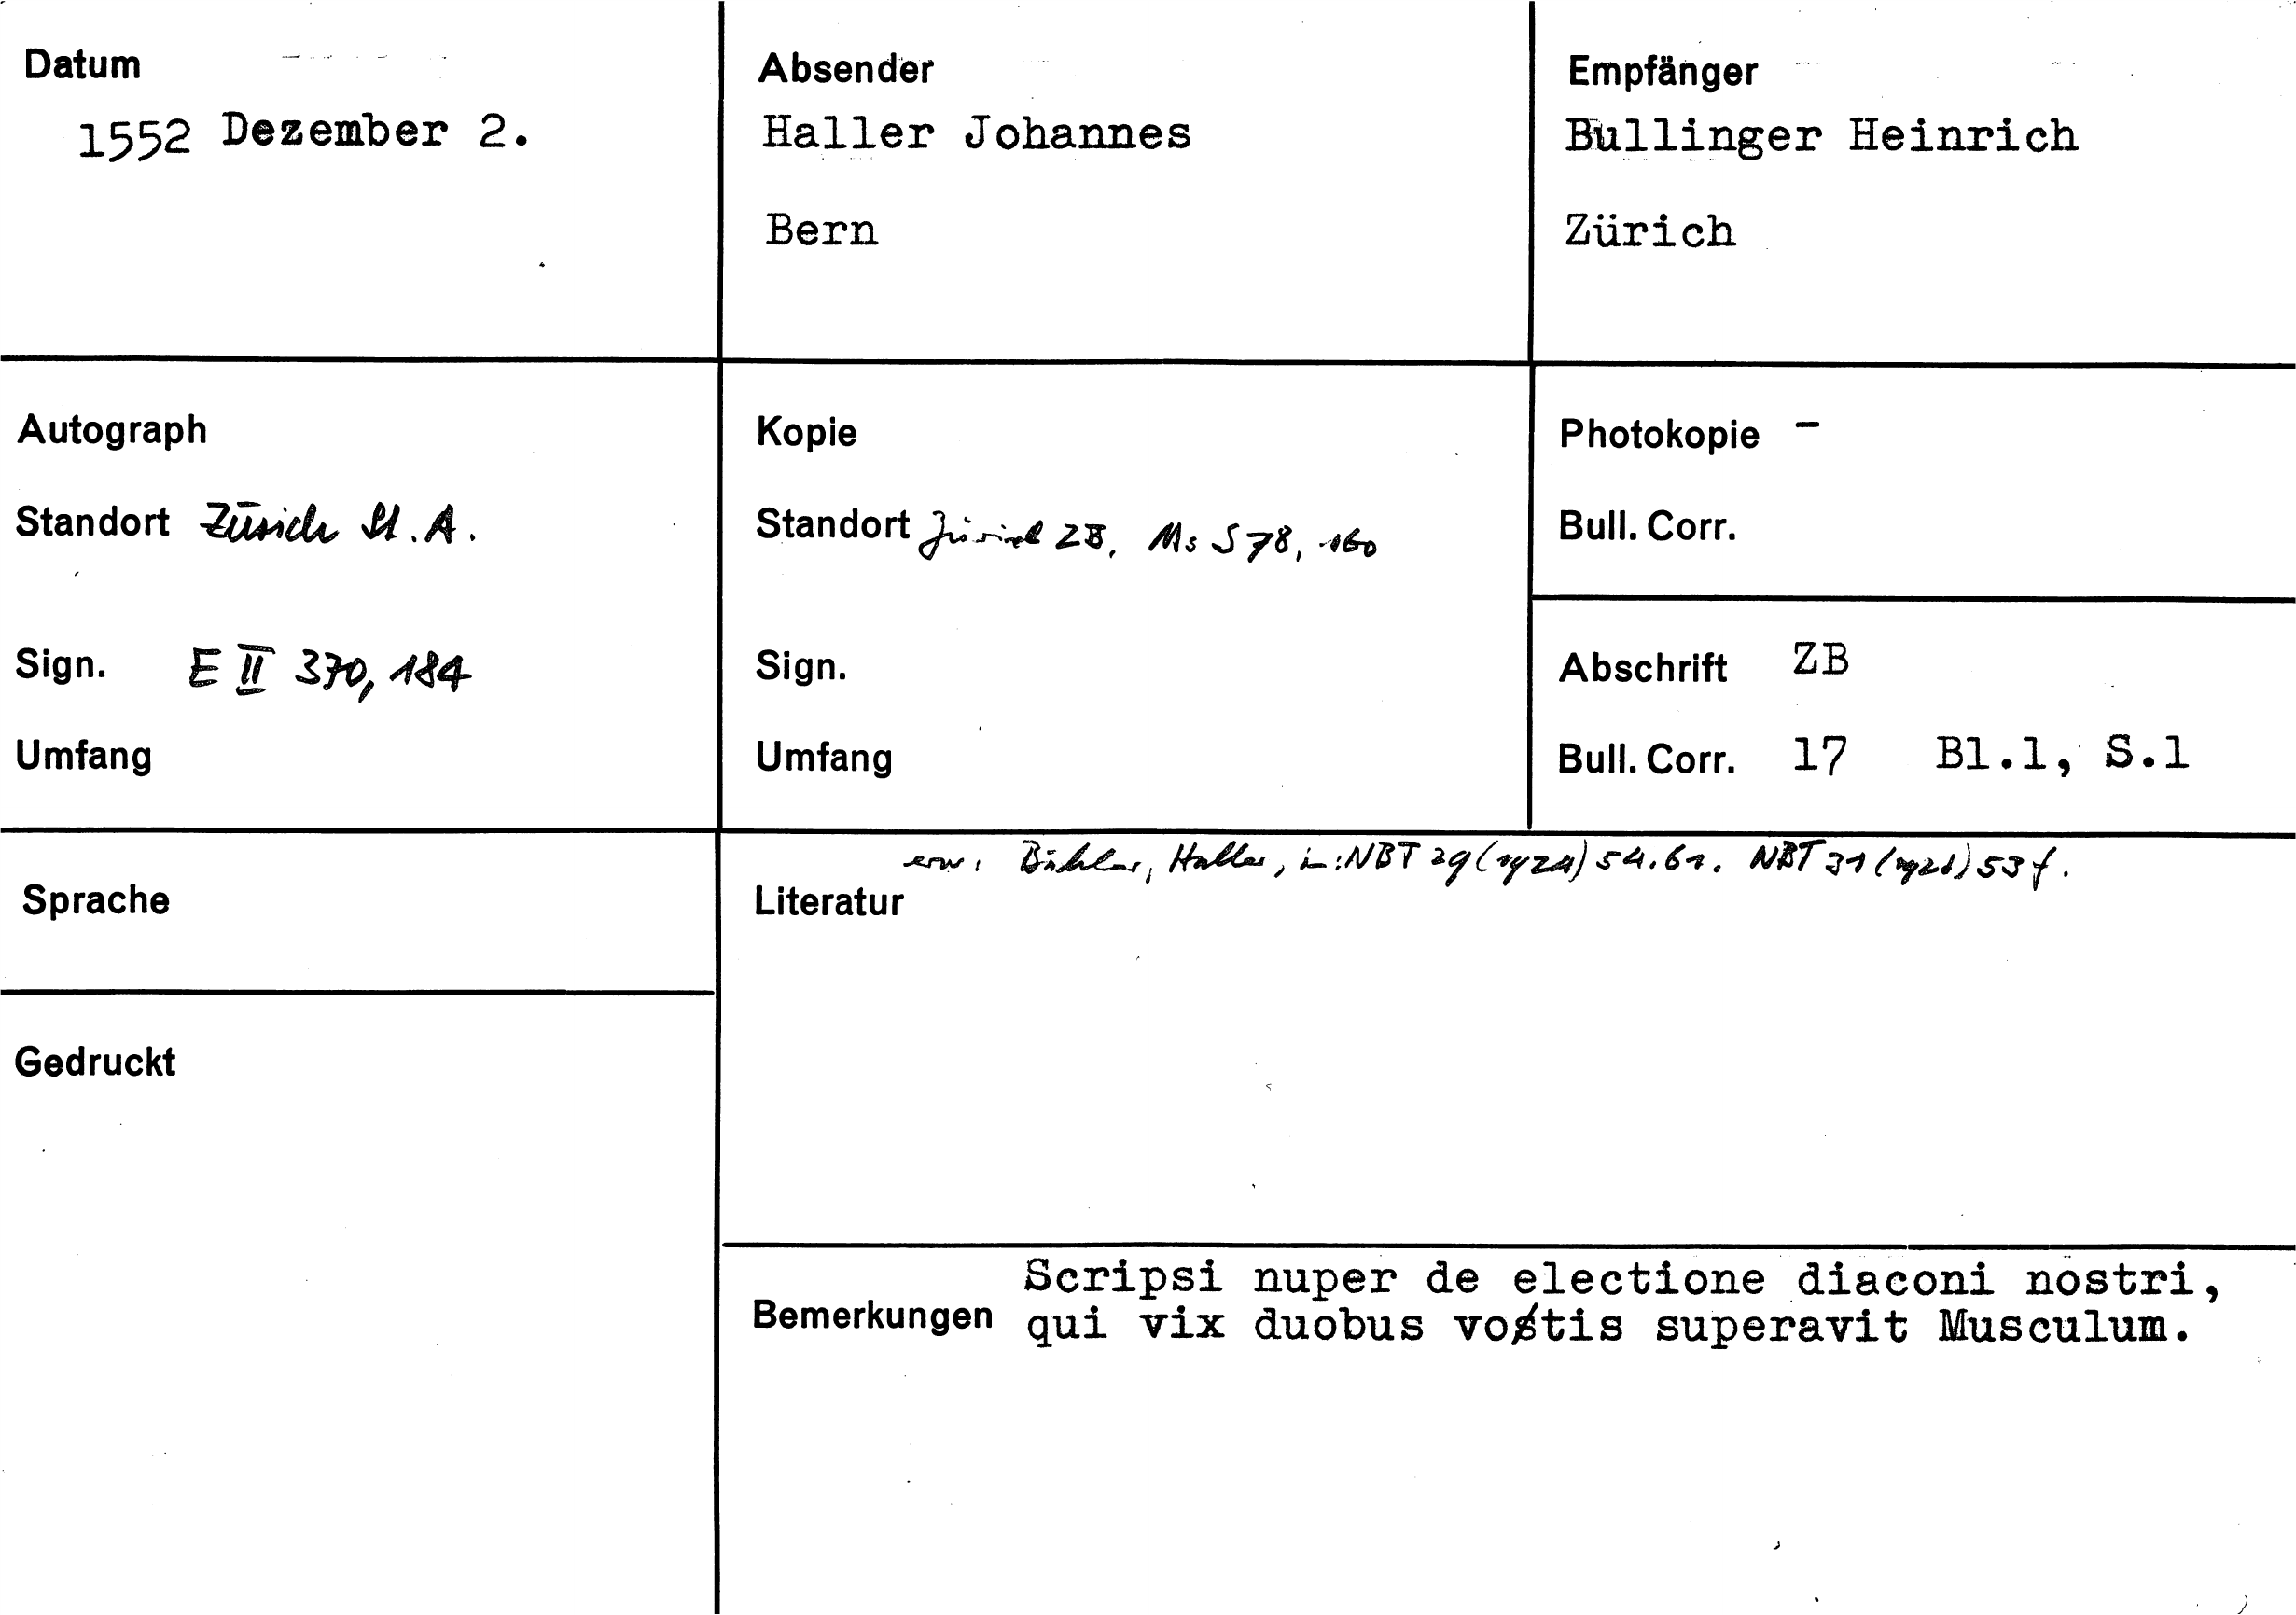 Datum
1552 Dezember 2.
Absender
Haller Johannes
Bern
Empfänger
Bullinger Heinrich
Zürich
Autograph
Standort Zürich St.A.
Sign. E II 370, 184
Umfang
Kopie
Standort Zürich ZB, Ms S 78, 160
Sign.
Umfang
Photokopie -
Bull. Corr.
Abschrift ZB
Bull. Corr. 17 Bl.1, S.1
Sprache
Gedruckt
erw. Bähler, Haller, in: NBT 29 (1924) 54.61. NBT 31 (1926) 53 f.
Literatur
Scripsi nuper de electione diaconi nostri,
Bemerkungen qui vix duobus votis superavit Musculum.